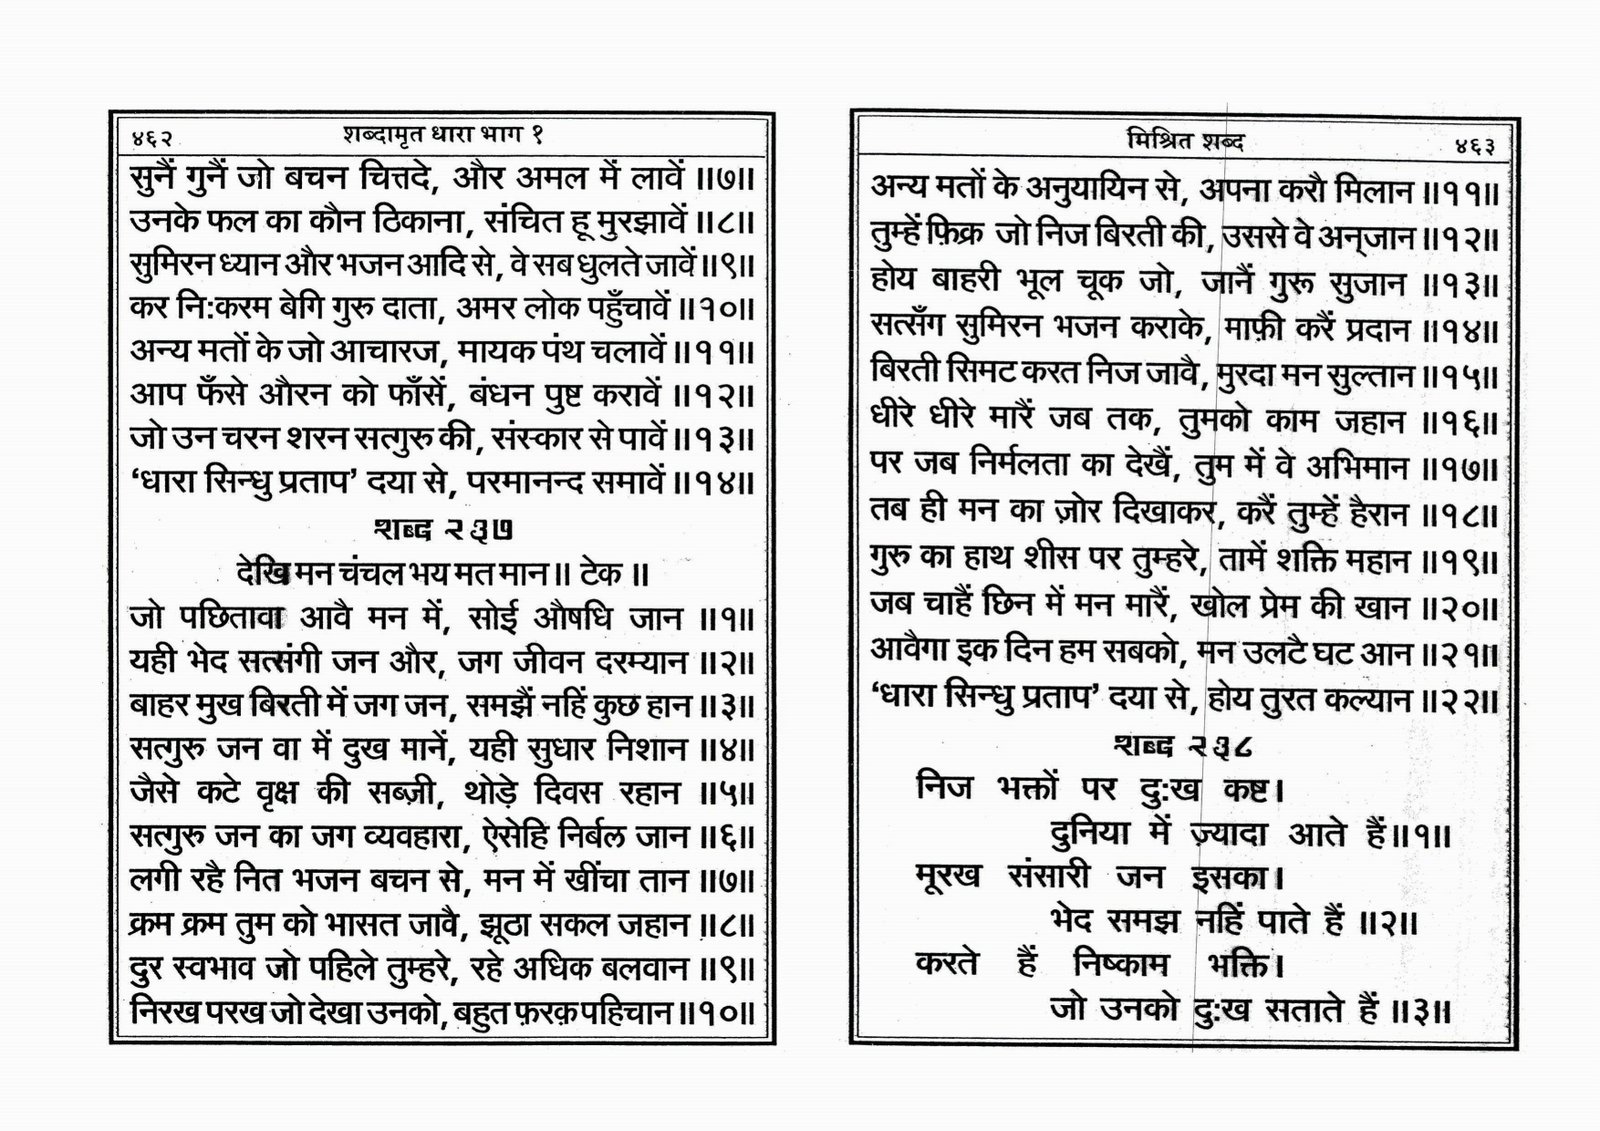 ४६२ शब्दामृत धारा भाग १
सुनैं गुनैं जो बचन चित्तदे, और अमल में लावें ॥७॥
उनके फल का कौन ठिकाना, संचित हू मुरझावें ॥८॥
सुमिरन ध्यान और भजन आदि से, वे सब धुलते जावें ॥९॥
कर नि:करम बेगि गुरु दाता, अमर लोक पहुँचावें ॥१०॥
अन्य मतों के जो आचारज, मायक पंथ चलावें ॥११॥
आप फँसे औरन को फाँसें, बंधन पुष्ट करावें ॥१२॥
जो उन चरन शरन सत्गुरु की, संस्कार से पावें ॥१३॥
‘धारा सिन्धु प्रताप’ दया से, परमानन्द समावें ॥१४॥
शब्द २३७
देखि मन चंचल भय मत मान ॥ टेक ॥
जो पछितावा आवै मन में, सोई औषधि जान ॥१॥
यही भेद सत्संगी जन और, जग जीवन दरम्यान ॥२॥
बाहर मुख बिरती में जग जन, समझैं नहिं कुछ हान ॥३॥
सत्गुरु जन वा में दुख मानें, यही सुधार निशान ॥४॥
जैसे कटे वृक्ष की सब्ज़ी, थोड़े दिवस रहान ॥५॥
सत्गुरु जन का जग व्यवहारा, ऐसेहि निर्बल जान ॥६॥
लगी रहै नित भजन बचन से, मन में खींचा तान ॥७॥
क्रम क्रम तुम को भासत जावै, झूठा सकल जहान ॥८॥
दुर स्वभाव जो पहिले तुम्हरे, रहे अधिक बलवान ॥९॥
निरख परख जो देखा उनको, बहुत फ़रक़ पहिचान ॥१०॥
मिश्रित शब्द ४६३
अन्य मतों के अनुयायिन से, अपना करौ मिलान ॥११॥
तुम्हें फ़िक्र जो निज बिरती की, उससे वे अन्‌जान ॥१२॥
होय बाहरी भूल चूक जो, जानैं गुरू सुजान ॥१३॥
सत्सँग सुमिरन भजन कराके, माफ़ी करैं प्रदान ॥१४॥
बिरती सिमट करत निज जावै, मुरदा मन सुल्तान ॥१५॥
धीरे धीरे मारैं जब तक, तुमको काम जहान ॥१६॥
पर जब निर्मलता का देखैं, तुम में वे अभिमान ॥१७॥
तब ही मन का ज़ोर दिखाकर, करैं तुम्हें हैरान ॥१८॥
गुरु का हाथ शीस पर तुम्हरे, तामें शक्ति महान ॥१९॥
जब चाहैं छिन में मन मारैं, खोल प्रेम की खान ॥२०॥
आवैगा इक दिन हम सबको, मन उलटै घट आन ॥२१॥
‘धारा सिन्धु प्रताप’ दया से, होय तुरत कल्यान ॥२२॥
शब्द २३८
निज भक्तों पर दु:ख कष्ट।
दुनिया में ज़्यादा आते हैं॥१॥
मूरख संसारी जन इसका।
भेद समझ नहिं पाते हैं ॥२॥
करते हैं निष्काम भक्ति।
जो उनको दु:ख सताते हैं ॥३॥